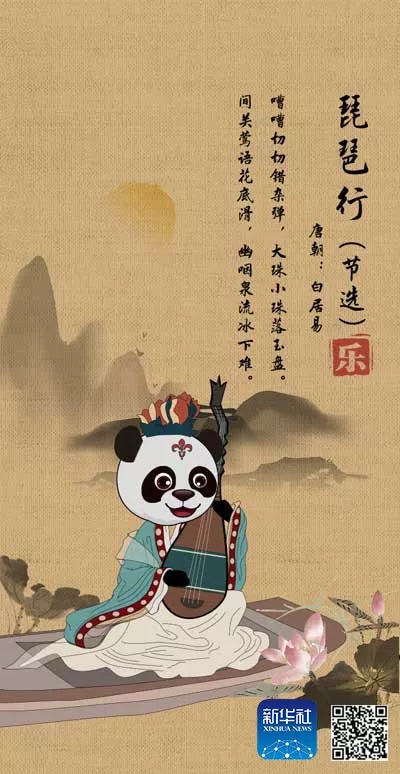 琵琶行（节选）
唐朝：白居易
乐
嘈嘈切切错杂弹，大珠小珠落玉盘。
间关莺语花底滑，幽咽泉流冰下难。
新华社
XINHUA NEWS